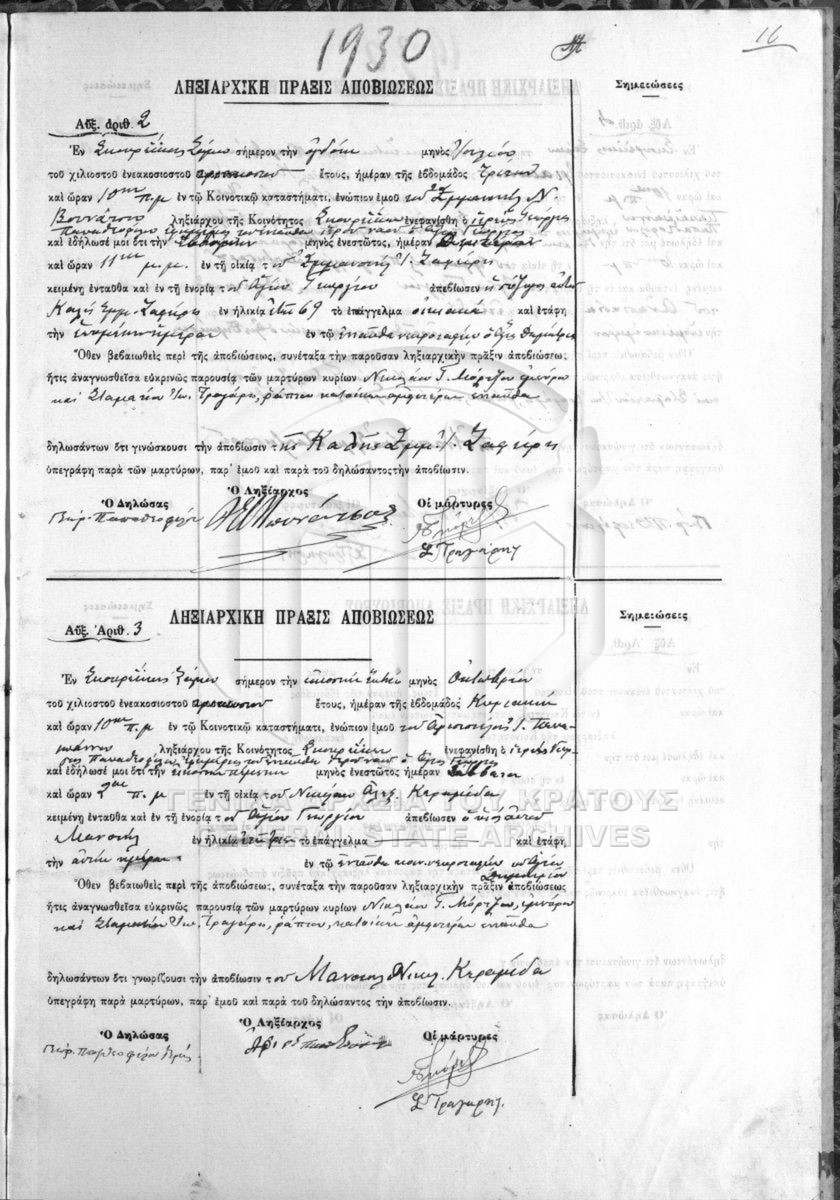 1930
16
ΛΗΞΙΑΡΧΙΚΗ ΠΡΑΞΙΣ ΑΠΟΒΙΩΣΕΩΣ
Σημειώσεις
Αὔξ. ἀριθ. 2
Ἐν Σκουρέϊκα Σάμου σήμερον τὴν ὀγδόην μηνὸς Ἰουλίου
τοῦ χιλιοστοῦ ἐνεακοσιοστοῦ τριακοστοῦ ἔτους, ἡμέραν τῆς ἑβδομάδος Τρίτην
καὶ ὥραν 10ην π.μ ἐν τῷ Κοινοτικῷ καταστήματι, ἐνώπιον ἐμοῦ τοῦ Ἐμμανουὴλ Ν.
ληξιάρχου τῆς Κοινότητος Σκουρεΐκων ἐνεφανίσθη ὁ ἱερεὺς Γεώργιος
καὶ ἐδήλωσέ μοι ὅτι τὴν ἑβδόμην μηνὸς ἐνεστῶτος, ἡμέραν Δευτέραν
καὶ ὥραν 11ην μ.μ. ἐν τῇ οἰκίᾳ τοῦ Ἐμμανουὴλ Ι. Ζαφείρη
κειμένῃ ἐνταῦθα καὶ ἐν τῇ ἐνορίᾳ τοῦ Ἁγίου Γεωργίου ἀπεβίωσεν ἡ σύζυγος αὐτοῦ
Καλὴ Ἐμμ. Ζαφείρη ἐν ἡλικίᾳ ἐτῶν 69 τὸ ἐπάγγελμα οἰκιακὰ καὶ ἐτάφη
τὴν ἑπομένην ἡμέραν ἐν τῷ ἐνταῦθα νεκροταφείῳ ὁ Ἅγιος Δημήτριος
Ὅθεν βεβαιωθεὶς περὶ τῆς ἀποβιώσεως, συνέταξα τὴν παροῦσαν ληξιαρχικὴν πρᾶξιν ἀποβιώσεως
ἥτις ἀναγνωσθεῖσα εὐκρινῶς παρουσίᾳ τῶν μαρτύρων κυρίων Νικολάου Γ. Μόρτζου ἐμπόρου
καὶ Σταματίου Ἰω. Τραγάρη, ράπτου κατοίκων ἀμφοτέρων ἐνταῦθα
δηλωσάντων ὅτι γινώσκουσι τὴν ἀποβίωσιν τῆς Καλῆς Ἐμμ. Ι. Ζαφείρη
ὑπεγράφη παρὰ τῶν μαρτύρων, παρ' ἐμοῦ καὶ παρὰ τοῦ δηλώσαντος τὴν ἀποβίωσιν.
Ὁ Δηλώσας
Ὁ Ληξίαρχος
Οἱ μάρτυρες
Σ Τραγάρης
Αὔξ. Ἀριθ. 3
ΛΗΞΙΑΡΧΙΚΗ ΠΡΑΞΙΣ ΑΠΟΒΙΩΣΕΩΣ
Σημειώσεις
Ἐν Σκουρέϊκα Σάμου σήμερον τὴν εἰκοστὴν ἕκτην μηνὸς Ὀκτωβρίου
τοῦ χιλιοστοῦ ἐνεακοσιοστοῦ τριακοστοῦ ἔτους, ἡμέραν τῆς ἑβδομάδος Κυριακὴν
καὶ ὥραν 10ην π.μ ἐν τῷ Κοινοτικῷ καταστήματι, ἐνώπιον ἐμοῦ τοῦ
ληξιάρχου τῆς Κοινότητος Σκουρεΐκων ἐνεφανίσθη ὁ ἱερεὺς
καὶ ἐδήλωσέ μοι ὅτι τὴν εἰκοστὴν πέμπτην μηνὸς ἐνεστῶτος ἡμέραν Σάββατον
καὶ ὥραν π.μ ἐν τῇ οἰκίᾳ τοῦ Νικολάου Ἀλεξ. Κεραμίδα
ΓΕΝΙΚΑ ΑΡΧΕΙΑ ΤΟΥ ΚΡΑΤΟΥΣ
κειμένῃ ἐνταῦθα καὶ ἐν τῇ ἐνορίᾳ τοῦ Ἁγίου Γεωργίου ἀπεβίωσεν ὁ υἱὸς αὐτοῦ
GENERAL STATE ARCHIVES
Μανουὴλ ἐν ἡλικίᾳ τὸ ἐπάγγελμα καὶ ἐτάφη
τὴν αὐτὴν ἡμέραν ἐν τῷ ἐνταῦθα
Ὅθεν βεβαιωθεὶς περὶ τῆς ἀποβιώσεως, συνέταξα τὴν παροῦσαν ληξιαρχικὴν πρᾶξιν ἀποβιώσεως
ἥτις ἀναγνωσθεῖσα εὐκρινῶς παρουσίᾳ τῶν μαρτύρων κυρίων Νικολάου Γ. Μόρτζου, ἐμπόρου
καὶ Σταματίου Ἰω. Τραγάρη, ράπτου, κατοίκων ἀμφοτέρων ἐνταῦθα
δηλωσάντων ὅτι γνωρίζουσι τὴν ἀποβίωσιν τοῦ Μανουὴλ Νικολ. Κεραμίδα
ὑπεγράφη παρὰ μαρτύρων, παρ' ἐμοῦ καὶ παρὰ τοῦ δηλώσαντος τὴν ἀποβίωσιν.
Ὁ Δηλώσας
Ὁ Ληξίαρχος
Οἱ μάρτυρες
Σ Τραγάρης.